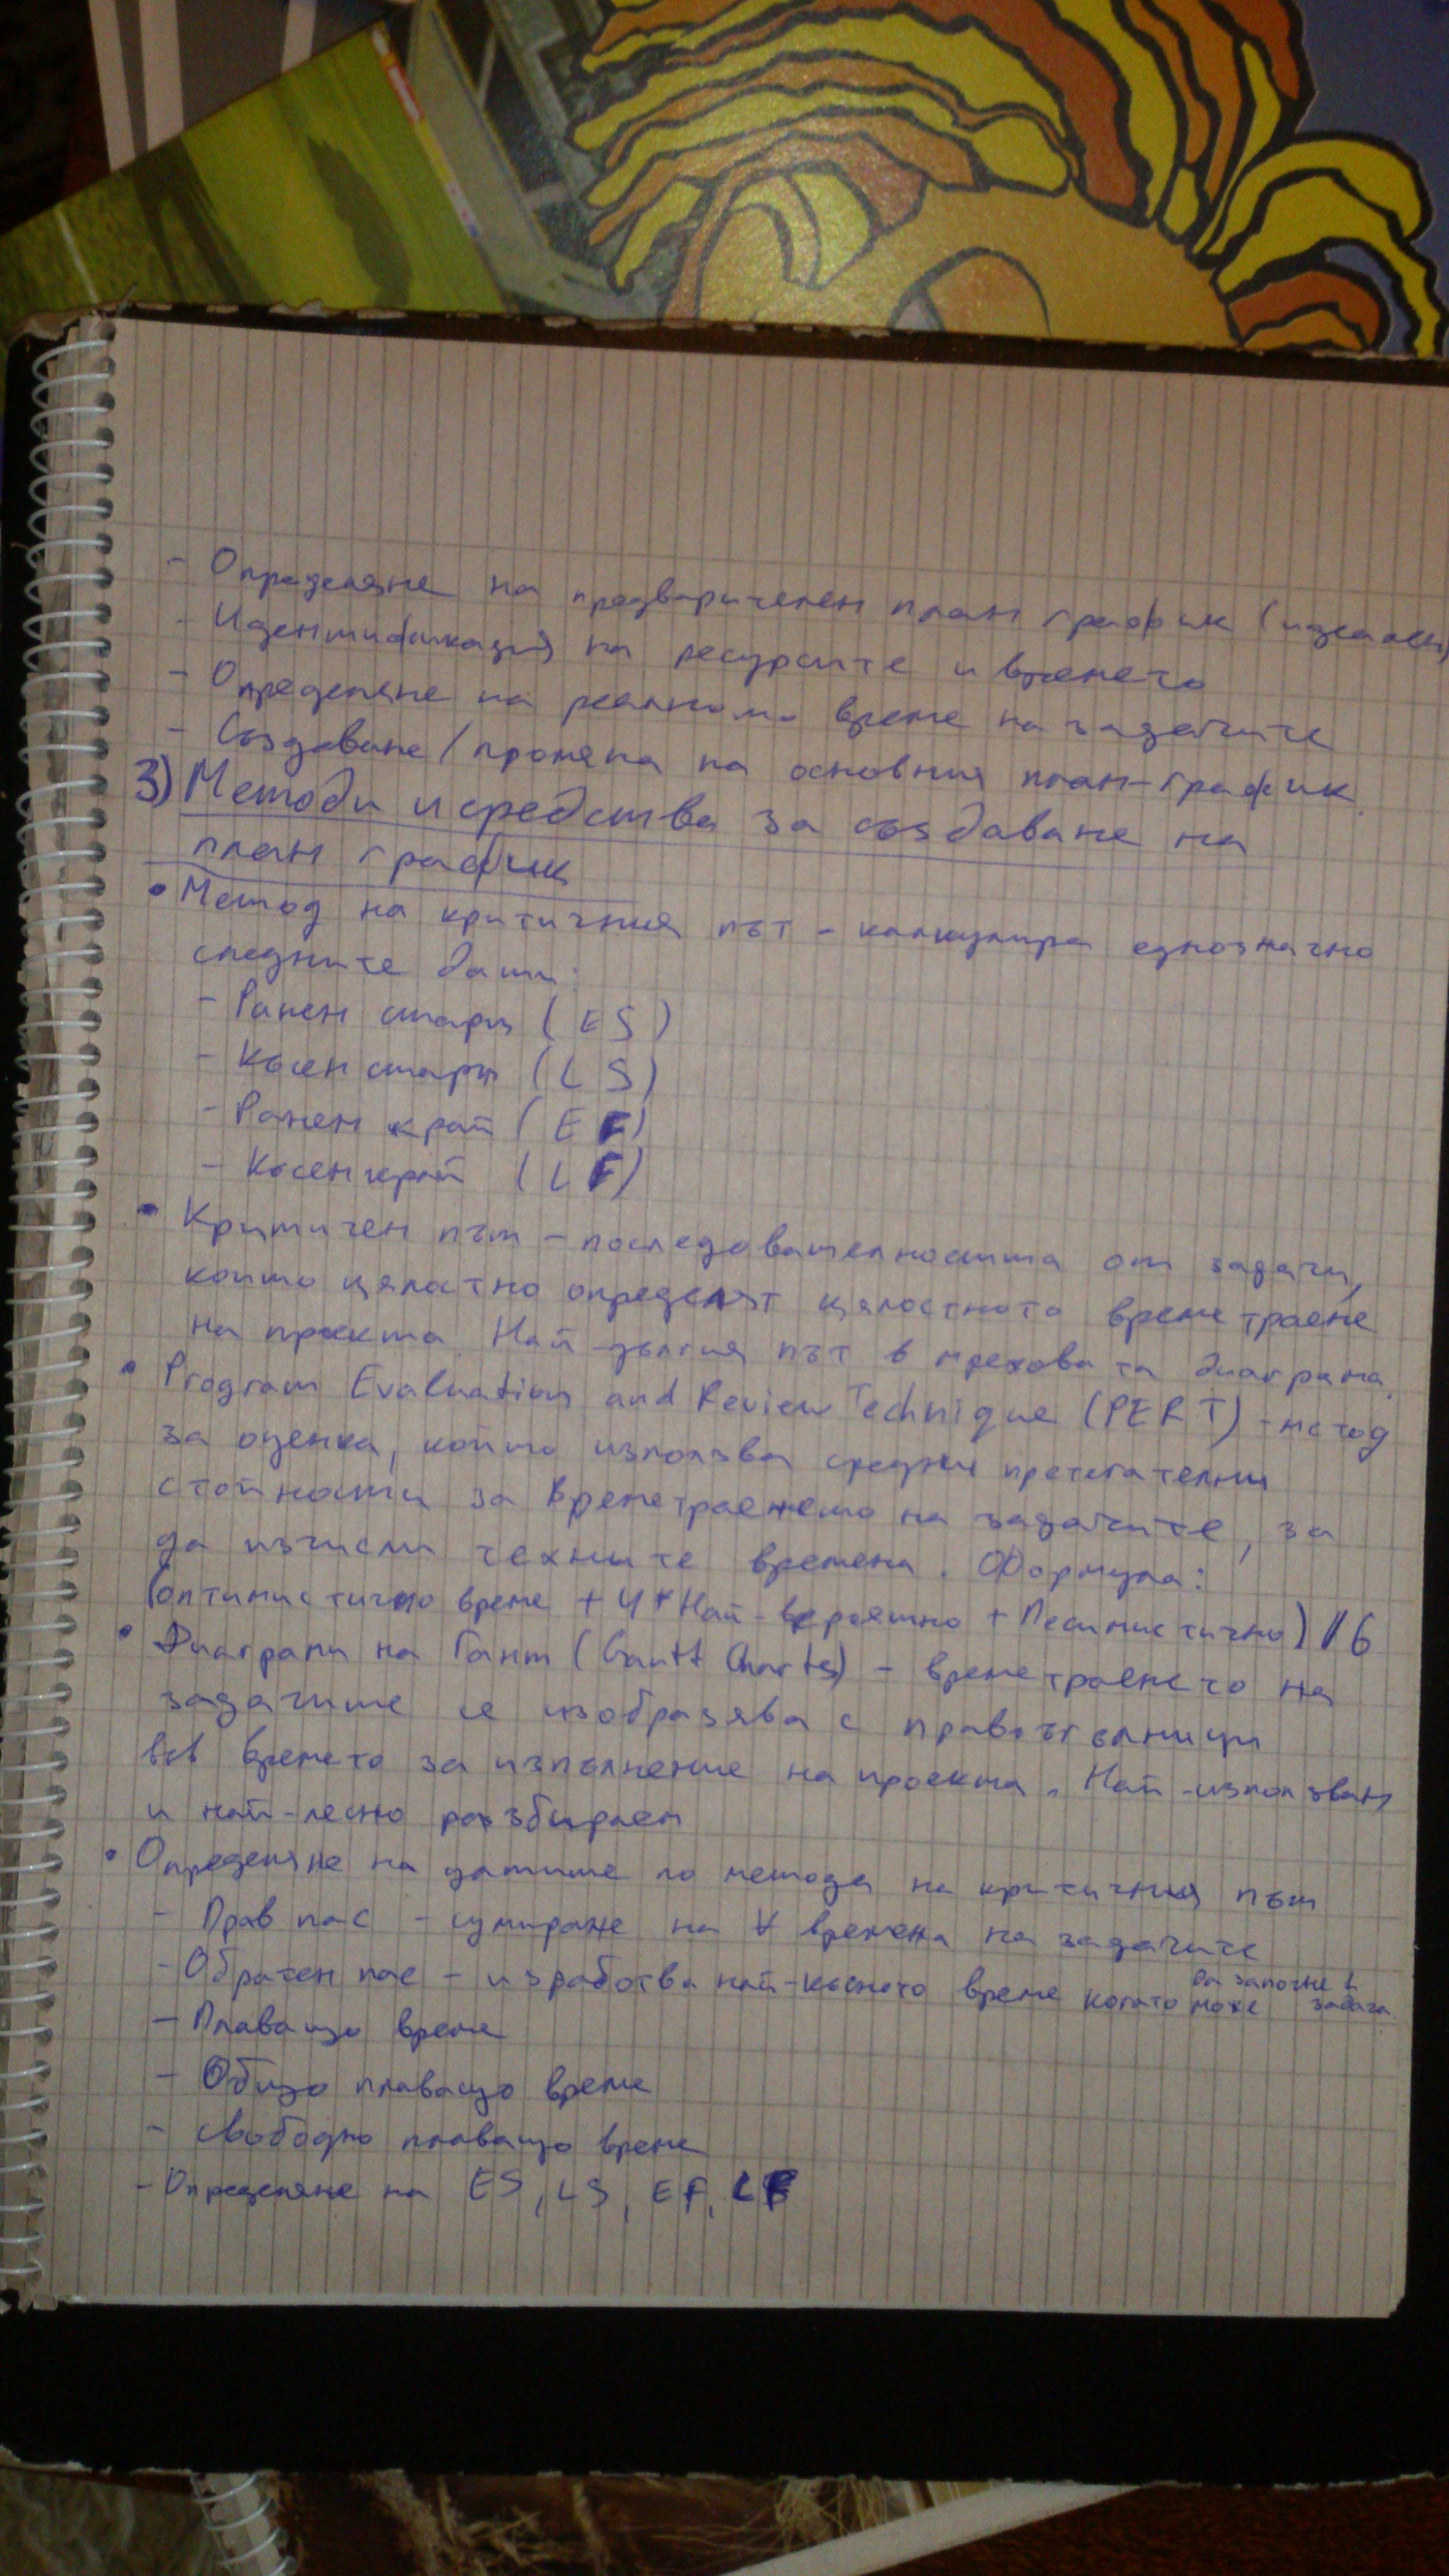 - Определяне на предварителен план график (идеален)
- Идентификация на ресурсите и времето
- Определяне на реалното време на задачите
- Създаване/промяна на основния план-график
3) Методи и средства за създаване на
план график
• Метод на критичния път - калкулира еднозначно
следните дати:
- Ранен старт (ES)
- Късен старт (LS)
- Ранен край (EF)
- Късен край (LF)
• Критичен път - последователността от задачи,
които цялостно определят цялостното времетраене
на проекта. Най-дългия път в мрежовата диаграма.
• Program Evaluation and Review Technique (PERT) - метод
за оценка, който използва средни претегателни
стойности за времетраенето на задачите, за
да изчисли техните времена. Формула:
(оптимистично време + 4*Най-вероятно + Песимистично) / 6
• Диаграми на Гант (Gantt Charts) - времетраенето на
задачите се изобразява с правоъгълници
във времето за изпълнение на проекта. Най-използван
и най-лесно разбираем
• Определяне на датите по метода на критичния път
- Прав пас - сумиране на ∀ времена на задачите
- Обратен пас - изработва най-късното време когато може да започне 1 задача
- Плаващо време
- Общо плаващо време
- Свободно плаващо време
- Определяне на ES, LS, EF, LF